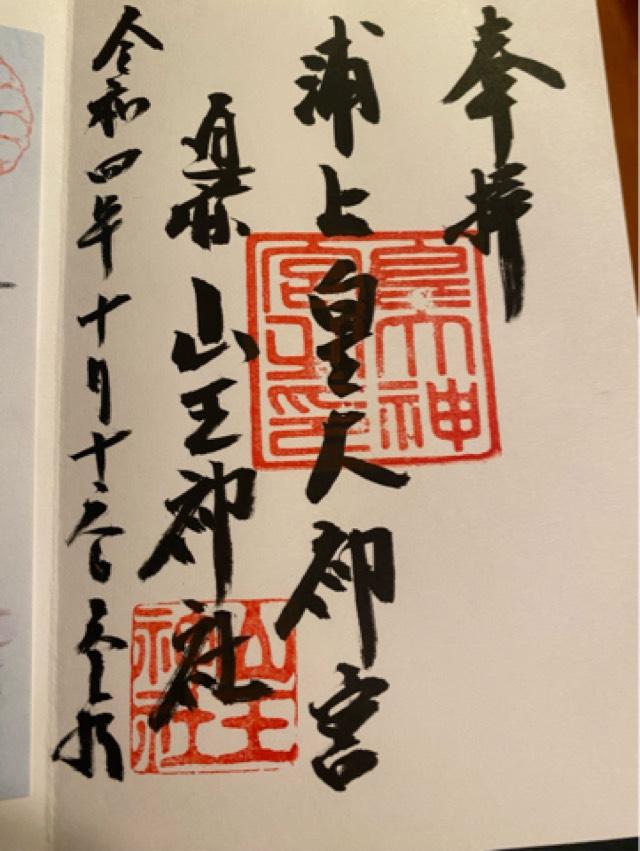 奉拝
浦上皇大神宮
山王神社
令和四年十月十六日
皇大神
宮之印
山王
神社